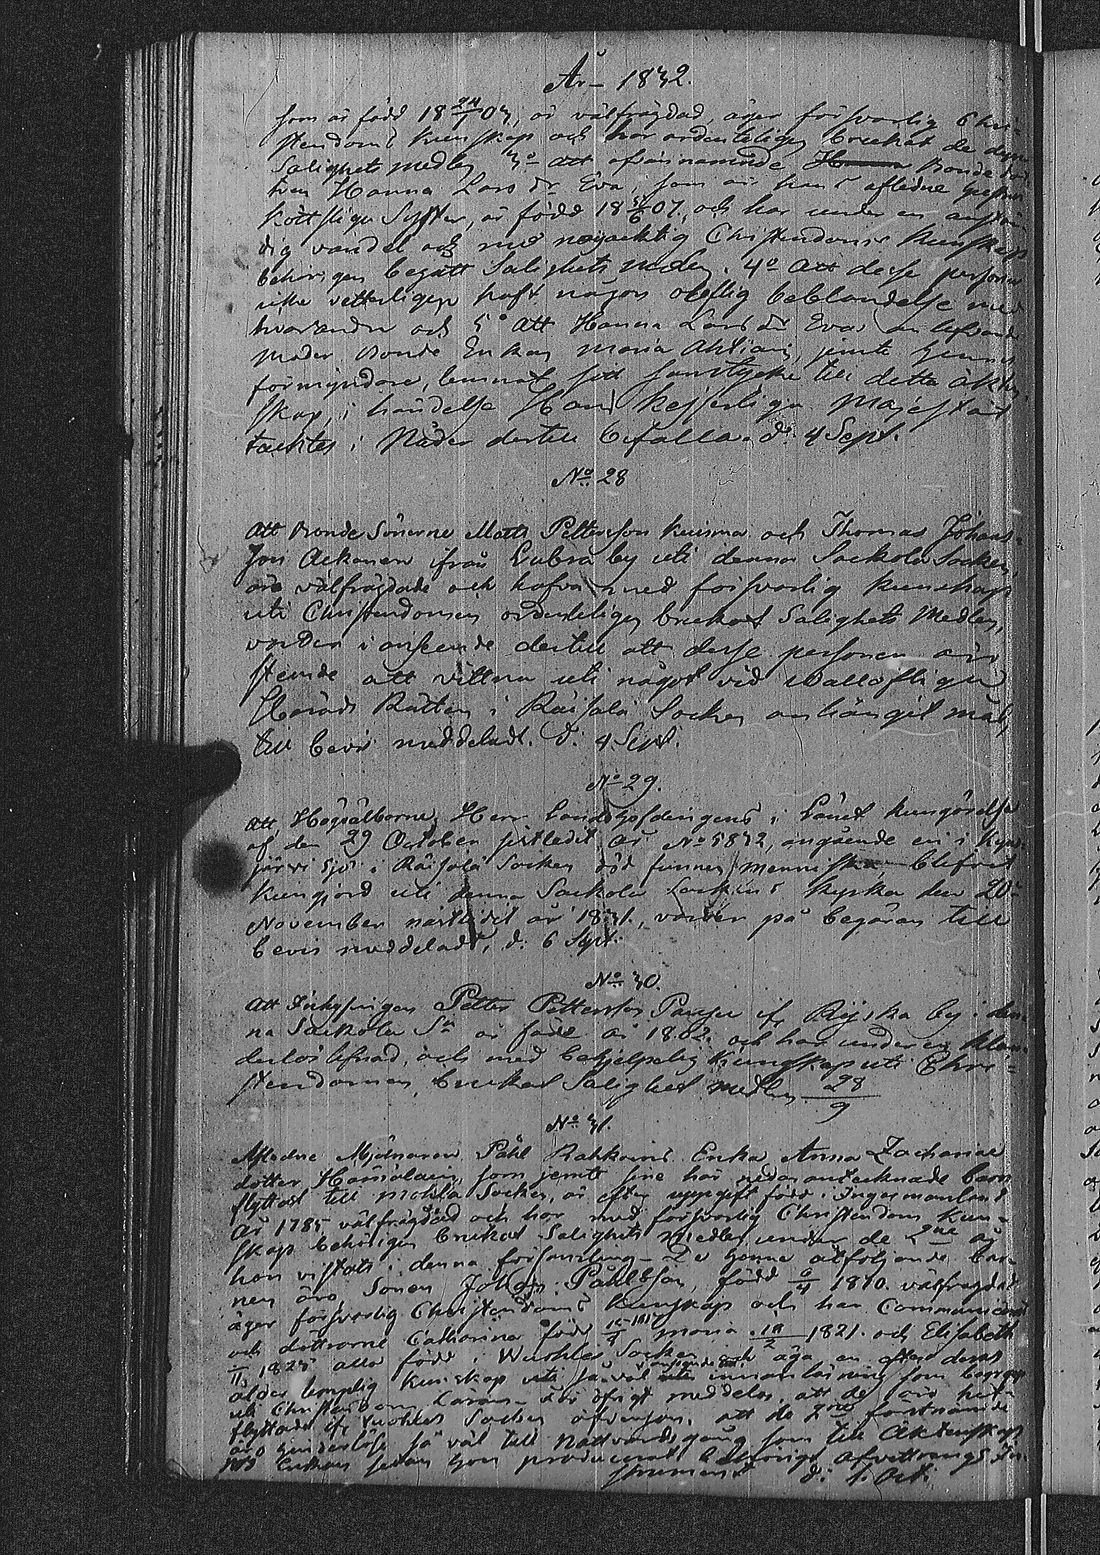 År 1832.
som är född 18 24/1 03, är välfrägdad, äger försvarlig Chri-
stendoms Kunskap och har ordenteligen brukat de dyra
Salighets medlen 3o att ofvannämnde Bonde dot-
tren Hanna Lars dr Eva, som är hans aflidne
köttsliga Syster, är född 18 5/6 07, och har under en anstän-
dig vandel och med nöjacktig Christendoms Kunskap
behörigen begått Salighets medlen. 4o Att desse personer
icke vetterligen haft någon oloflig beblandelse med
hvarandra och 5o Att Hanna Lars dr Evas
moder Bonde Enkan Maria Ahtiain, jemte hennes
förmyndare, lemnat sitt samtycke till detta äkten-
skap, i händelse Hans Kejserliga Majestät
täcktes i Nåder dertill befalla. d. 4 Sept.
No 28
Att Bonde Sönerne Matts Pettersson Kuisma och Thomas Johans-
son Ackanen ifrån Lubra by uti denna Sackola Socken,
äro välfrägdade och hafva med försvarlig Kunskap
uti Christendomen ordenteligen brukat Salighets Medlen,
varder i anseende dertill att desse personer äro
stemde att vittna uti något vid
Härads Rätten i Räisälä Socken anhängit mål,
till bevis meddeladt. d. 4 Sept.
No 29.
Att Högvälborne Herr Landshöfdingens i Länet kungörelse
af den 29 October sistledit år No 5832, angående en i
järvi Sjö i Räisälä Socken död funnen menniska, blifvit
kungjord uti denna Sackola Sockens kyrka den 20de
November nästledit år 1831., varder på begäran till
bevis meddeladt, d. 6 Sept.
No 30.
Att Petter Pettersson if. Röiska by i den-
na Sackola Sn är född år 1802. och har under en klan-
derlös lefnad, och med behjelpelig Kunskap uti Chri-
stendomen, brukat Salighets medlen 28/9
No 31.
Afledne Mjölnaren Påhl Rahkoins Enka Anna Zachariae
dotter Hämäläin, som jemte sine här nedan antecknade barn
flyttat till Mohla Socken, är efter uppgift född i Ingermanland
År 1785 välfrägdad och har med försvarlig Christendoms Kun-
skap behörigen brukat Salighets medlen under de 2ne år
hon vistats i denna församling. De henne åtföljande bar-
nen äro Sonen Johan Påhlsson, född 6/4 1810. välfrägdad
äger försvarlig Christendoms Kunskap och har Communicerat
och döttrarne Catharina född Maria 1821. och Elisabeth
1825 alla född i Wuohlas Socken och äga en efter deras
ålder lemplig Kunskap uti så väl innanläsning som begrepp
uti Christendoms Läran. För öfrigt meddelas att de äro hit
flyttade if. Wuohlas Socken att de 2ne förstnämnde
äro hinderlöse så väl till Nattvardsgång som till Äktenskap
hon producerat behörigt afvittrings In-
strument d. 1. Oct.